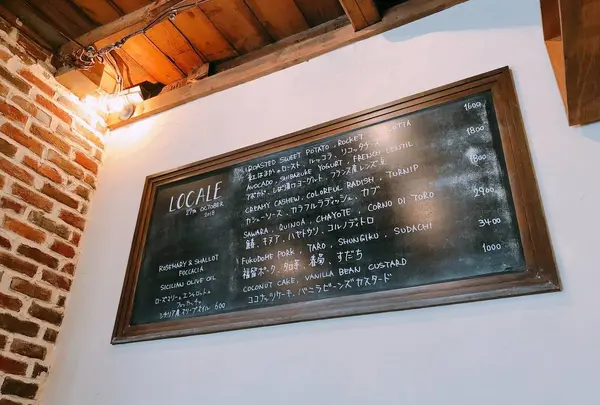 LOCALE
27th OCTOBER
2018
ROSEMARY & SHALLOT
FOCCACIA
SICILIAN OLIVE OIL
ローズマリーとエシャロットの
フォカッチャ
シチリア産オリーブオイル 600
ROASTED SWEET POTATO, ROCKET, RICOTTA 1600
紅はるかのロースト、ルッコラ、リコッタチーズ
AVOCADO, SHIBAZUKE YOGURT, FRENCH LENTIL 1800
アボカド、しば漬けヨーグルト、フランス産レンズ豆
CREAMY CASHEW, COLORFUL RADISH, TURNIP 1800
カシューソース、カラフルラディッシュ、カブ
SAWARA, QUINOA, CHAYOTE, CORNO DI TORO 2900
鰆、キヌア、ハヤトウリ、コルノディトロ
FUKUDOME PORK, TARO, SHUNGIKU, SUDACHI 3400
福留ポーク、春菊、すだち
COCONUT CAKE, VANILLA BEAN CUSTARD 1000
ココナッツケーキ、バニラビーンズカスタード